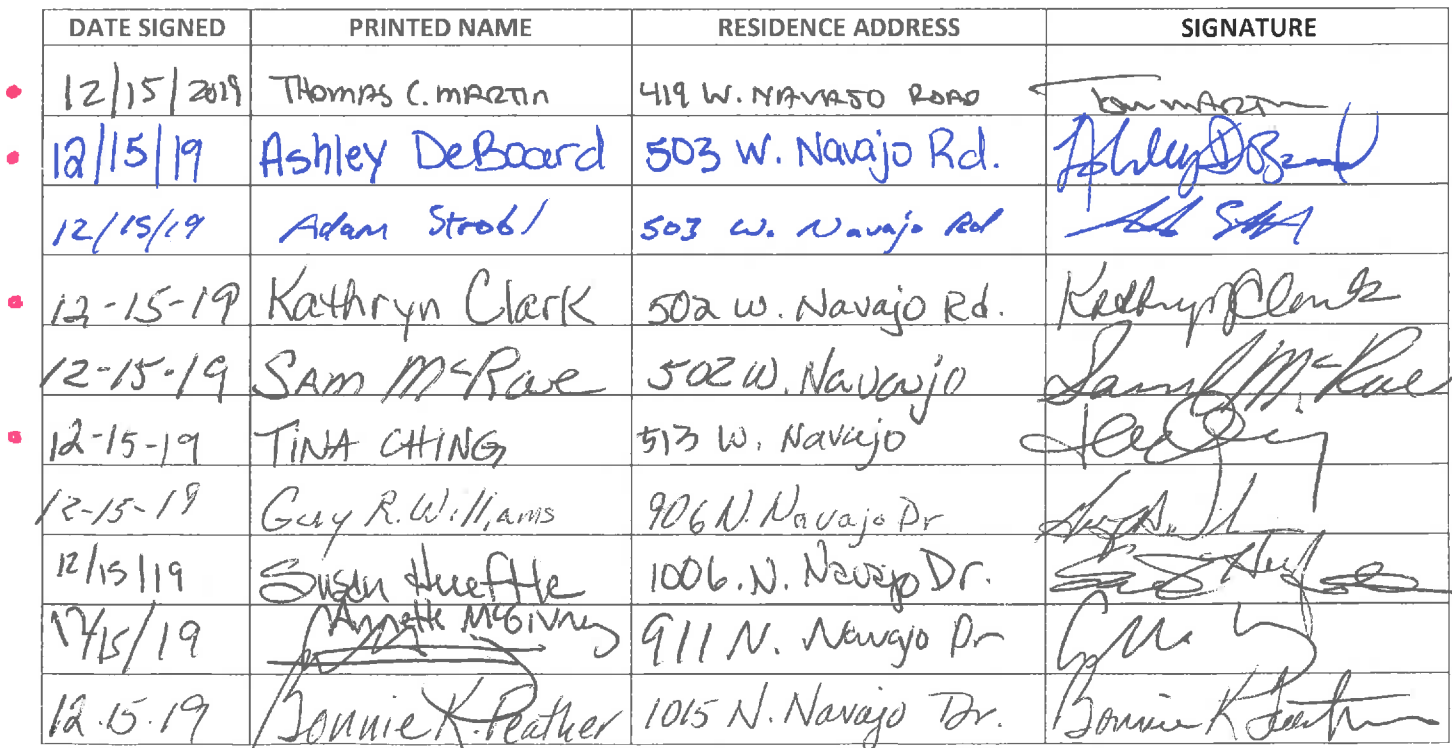 DATE SIGNED PRINTED NAME RESIDENCE ADDRESS SIGNATURE
12/15/2019 THOMAS C. MARTIN 419 W. NAVAJO ROAD Tom MARTIN
12/15/19 Ashley DeBoard 503 W. Navajo Rd. Ashley DeBoard
12/15/19 Adam Strobl 503 W. Navajo Rd
12-15-19 Kathryn Clark 502 W. Navajo Rd. Kathryn Clark
12-15-19 SAM McRae 502 W. Navajo Sam McRae
12-15-19 TINA CHING 513 W. Navajo
12-15-19 Guy R. Williams 906 N. Navajo Dr
12/15/19 Susan Hueftle 1006. N. Navajo Dr.
12/15/19 Annette McGivney 911 N. Navajo Dr
12.15.19 Bonnie K. Feather 1015 N. Navajo Dr. Bonnie K Feather